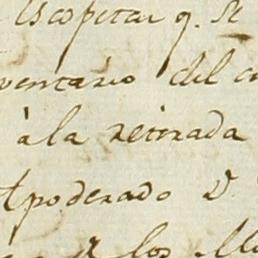 Escopetas q. se
ventario del
à la retirada
Apoderado D.
los